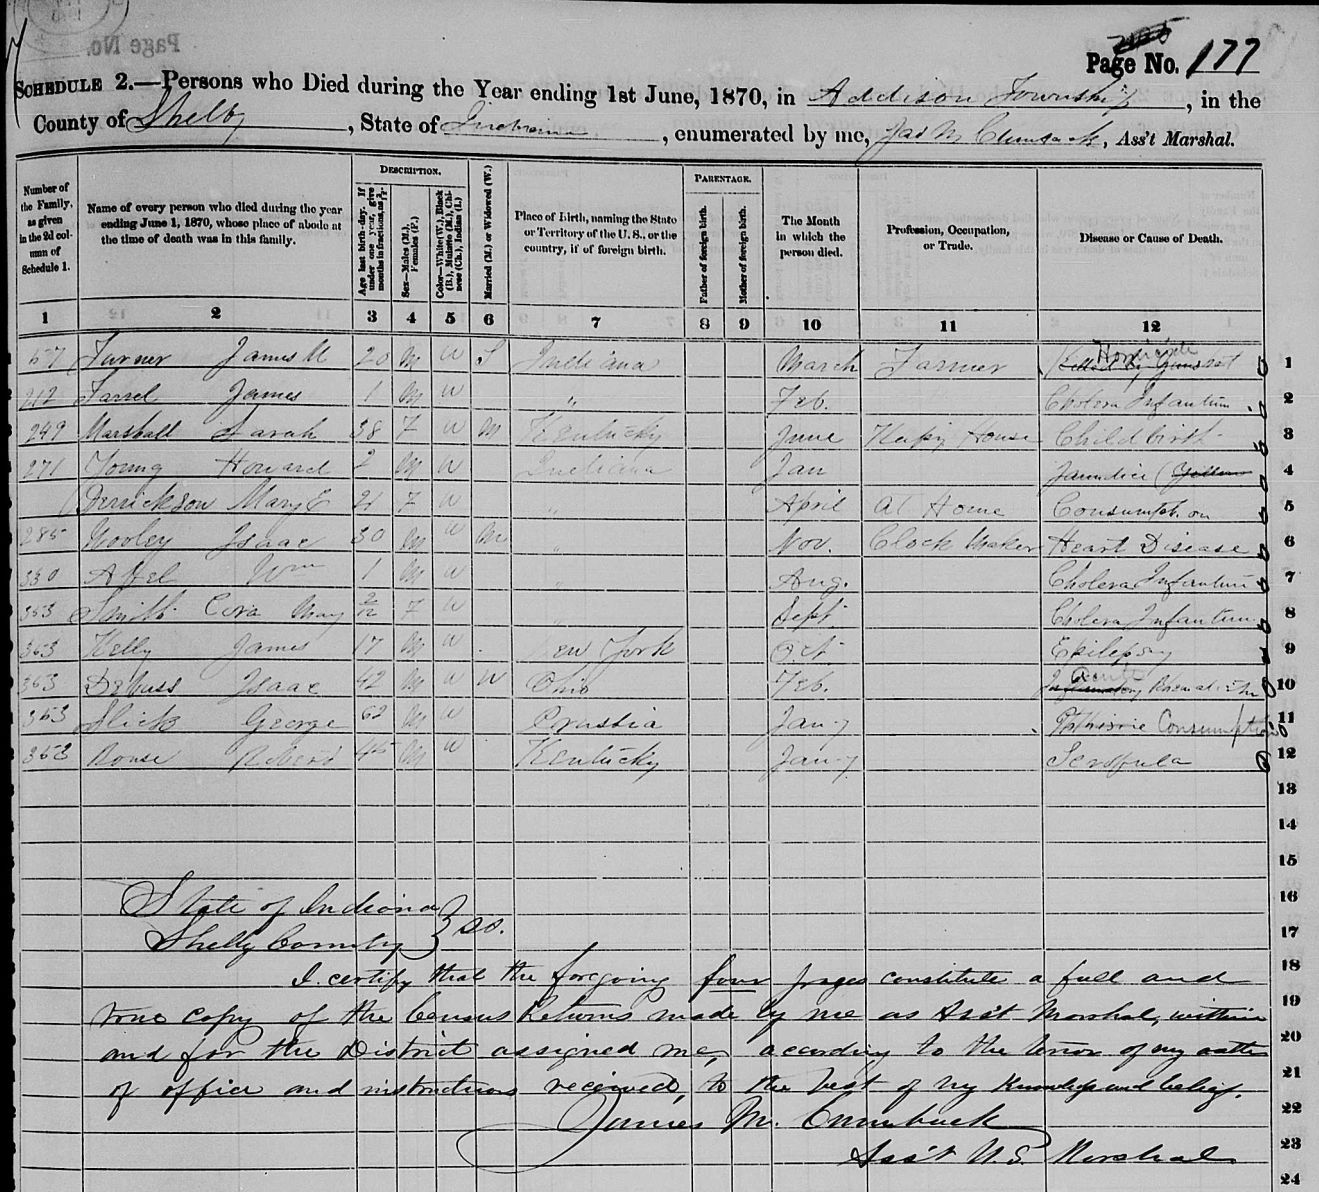 Page No. 177
SCHEDULE 2.—Persons who Died during the Year ending 1st June, 1870, in Addison Township, in the
County of Shelby, State of Indiana, enumerated by me, Jas M Crumback, Ass't Marshal.
Number of the Family, as given in the 2d column of Schedule 1.
Name of every person who died during the year ending June 1, 1870, whose place of abode at the time of death was in this family.
DESCRIPTION.
Age last birth-day. If under one year, give months in fractions, as
Sex—Males (M.), Females (F.).
Color—White (W.), Black (B.), Mulatto (M.), Chinese (Ch.), Indian (I.)
Married (M.) or Widowed (W.)
Place of Birth, naming the State or Territory of the U. S., or the country, if of foreign birth.
PARENTAGE.
Father of foreign birth.
Mother of foreign birth.
The Month in which the person died.
Profession, Occupation, or Trade.
Disease or Cause of Death.
1 2 3 4 5 6 7 8 9 10 11 12
Turner James 20 M W S Indiana March Farmer Killed by Gunshot Homicide 1
212 Farrel James 1 M W " Feb. Cholera Infantum 2
249 Marshall Sarah 38 F W M Kentucky June Keeping House Childbirth 3
271 Young Howard 2 M W Indiana Jan Jaundice (Yellow 4
Derrickson Mary E 21 F W " April At Home Consumption 5
285 Wooley Isaac 30 M W M " Nov. Clock Maker Heart Disease 6
330 Abel Wm 1 M W " Aug. Cholera Infantum 7
353 Smith Cora May 2/12 F W " Sept Cholera Infantum 8
353 Kelly James 17 M W New York Oct Epilepsy 9
353 Debuss Isaac 42 M W W Ohio Feb. Acute 10
353 Slick George 62 M W Prussia Jan'y Phthisic Consumption 11
353 Rouse Robert 45 M W Kentucky Jan'y Scrofula 12
13
14
15
State of Indiana 16
Shelby County } SS. 17
I certify that the foregoing four pages constitute a full and 18
true copy of the Census Returns made by me as Ass't Marshal, within 19
and for the District assigned me, according to the tenor of my oath 20
of office and instructions received, to the best of my knowledge and belief. 21
James M. Crumback 22
Ass't U.S. Marshal 23
24